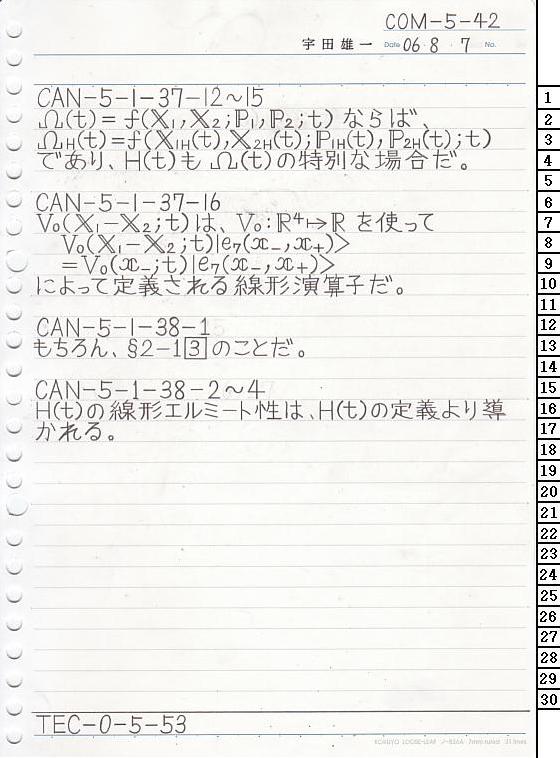 COM-5-42
宇田雄一 Date 06・8・7 No.
CAN-5-1-37-12~15
Ω(t)=f(𝕏₁,𝕏₂;ℙ₁,ℙ₂;t) ならば、
Ω_H(t)=f(𝕏₁H(t),𝕏₂H(t);ℙ₁H(t),ℙ₂H(t);t)
であり、H(t)も Ω(t)の特別な場合だ。
CAN-5-1-37-16
V₀(𝕏₁-𝕏₂;t)は、V₀:ℝ⁴↦ℝ を使って
V₀(𝕏₁-𝕏₂;t)|e₇(x₋,x₊)>
=V₀(x₋;t)|e₇(x₋,x₊)>
によって定義される線形演算子だ。
CAN-5-1-38-1
もちろん、§2-1[3]のことだ。
CAN-5-1-38-2~4
H(t)の線形エルミート性は、H(t)の定義より導
かれる。
TEC-0-5-53
KOKUYO LOOSE-LEAF ノ-836A 7mm ruled 31 lines
1
2
3
4
5
6
7
8
9
10
11
12
13
14
15
16
17
18
19
20
21
22
23
24
25
26
27
28
29
30